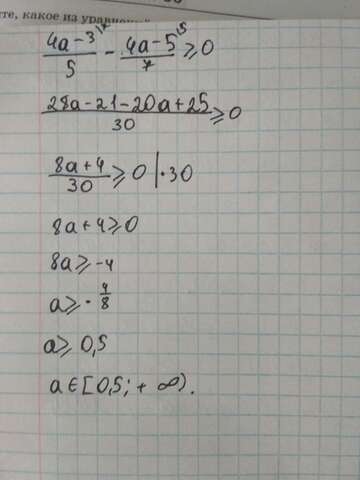 те, какое из уравнений
(4a-3)/5 \7 - (4a-5)/7 \5 ≥ 0
(28a-21-20a+25)/30 ≥ 0
(8a+4)/30 ≥ 0 | ·30
8a+4≥0
8a≥-4
a≥-4/8
a≥ 0,5
a∈[0,5; +∞).